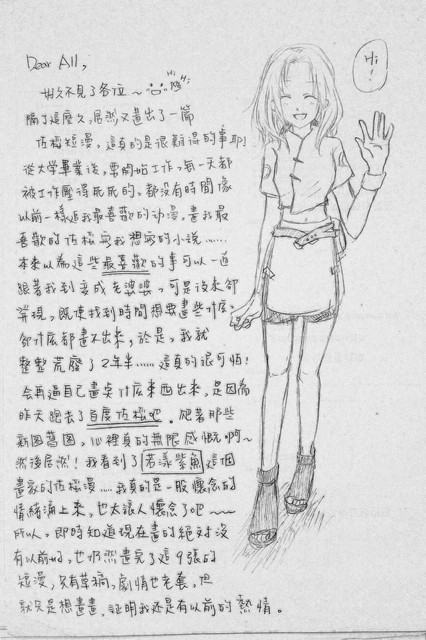 Dear All,
好久不見了各位～ Hi Hi
隔了這麼久，居然又畫出了一篇
佐櫻短漫，這真的是很難得的事耶！
從大學畢業後，要開始工作，每一天都
被工作壓得死死的，都沒有時間像
以前一樣追我最喜歡的动漫，畫我最
喜歡的佐櫻，寫我想寫的小說……
本來以為這些最喜歡的事可以一直
跟著我到变成老婆婆，可是後來卻
發現，既使找到時間想要畫些什麼，
卻什麼都畫不出來，於是，我就
整整荒廢了2年半……這真的很可怕！
會再逼自己畫点什麼東西出來，是因為
昨天跑去了百度佐櫻吧，爬著那些
新图舊图，心裡真的無限感慨啊～
然後居然！我看到了若漾紫魚這個
畫家的佐櫻漫……我真的是一股懷念的
情緒涌上來，也太讓人懷念了吧～～
所以，即時知道現在畫的絕对沒
有以前好，也仍然畫完了這9張的
短漫，只有草稿，劇情也老套，但
就只是想畫畫，証明我还是有以前的熱情。
Hi!